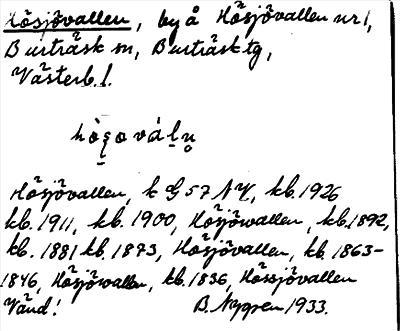 Hösjövallen, by å Hösjövallen nr 1,
Burträsk sn, Burträsk tg,
Västerb. l.
Hösjövallen, k G 57 NV, kb. 1926
kb. 1911, kb. 1900, Hösjöwallen, kb. 1892,
kb. 1881 kb. 1873, Hösjövallen, kb. 1863-
1846, Hösjöwallen, kb. 1836, Hössjövallen
Vänd! B. Nygren 1933.